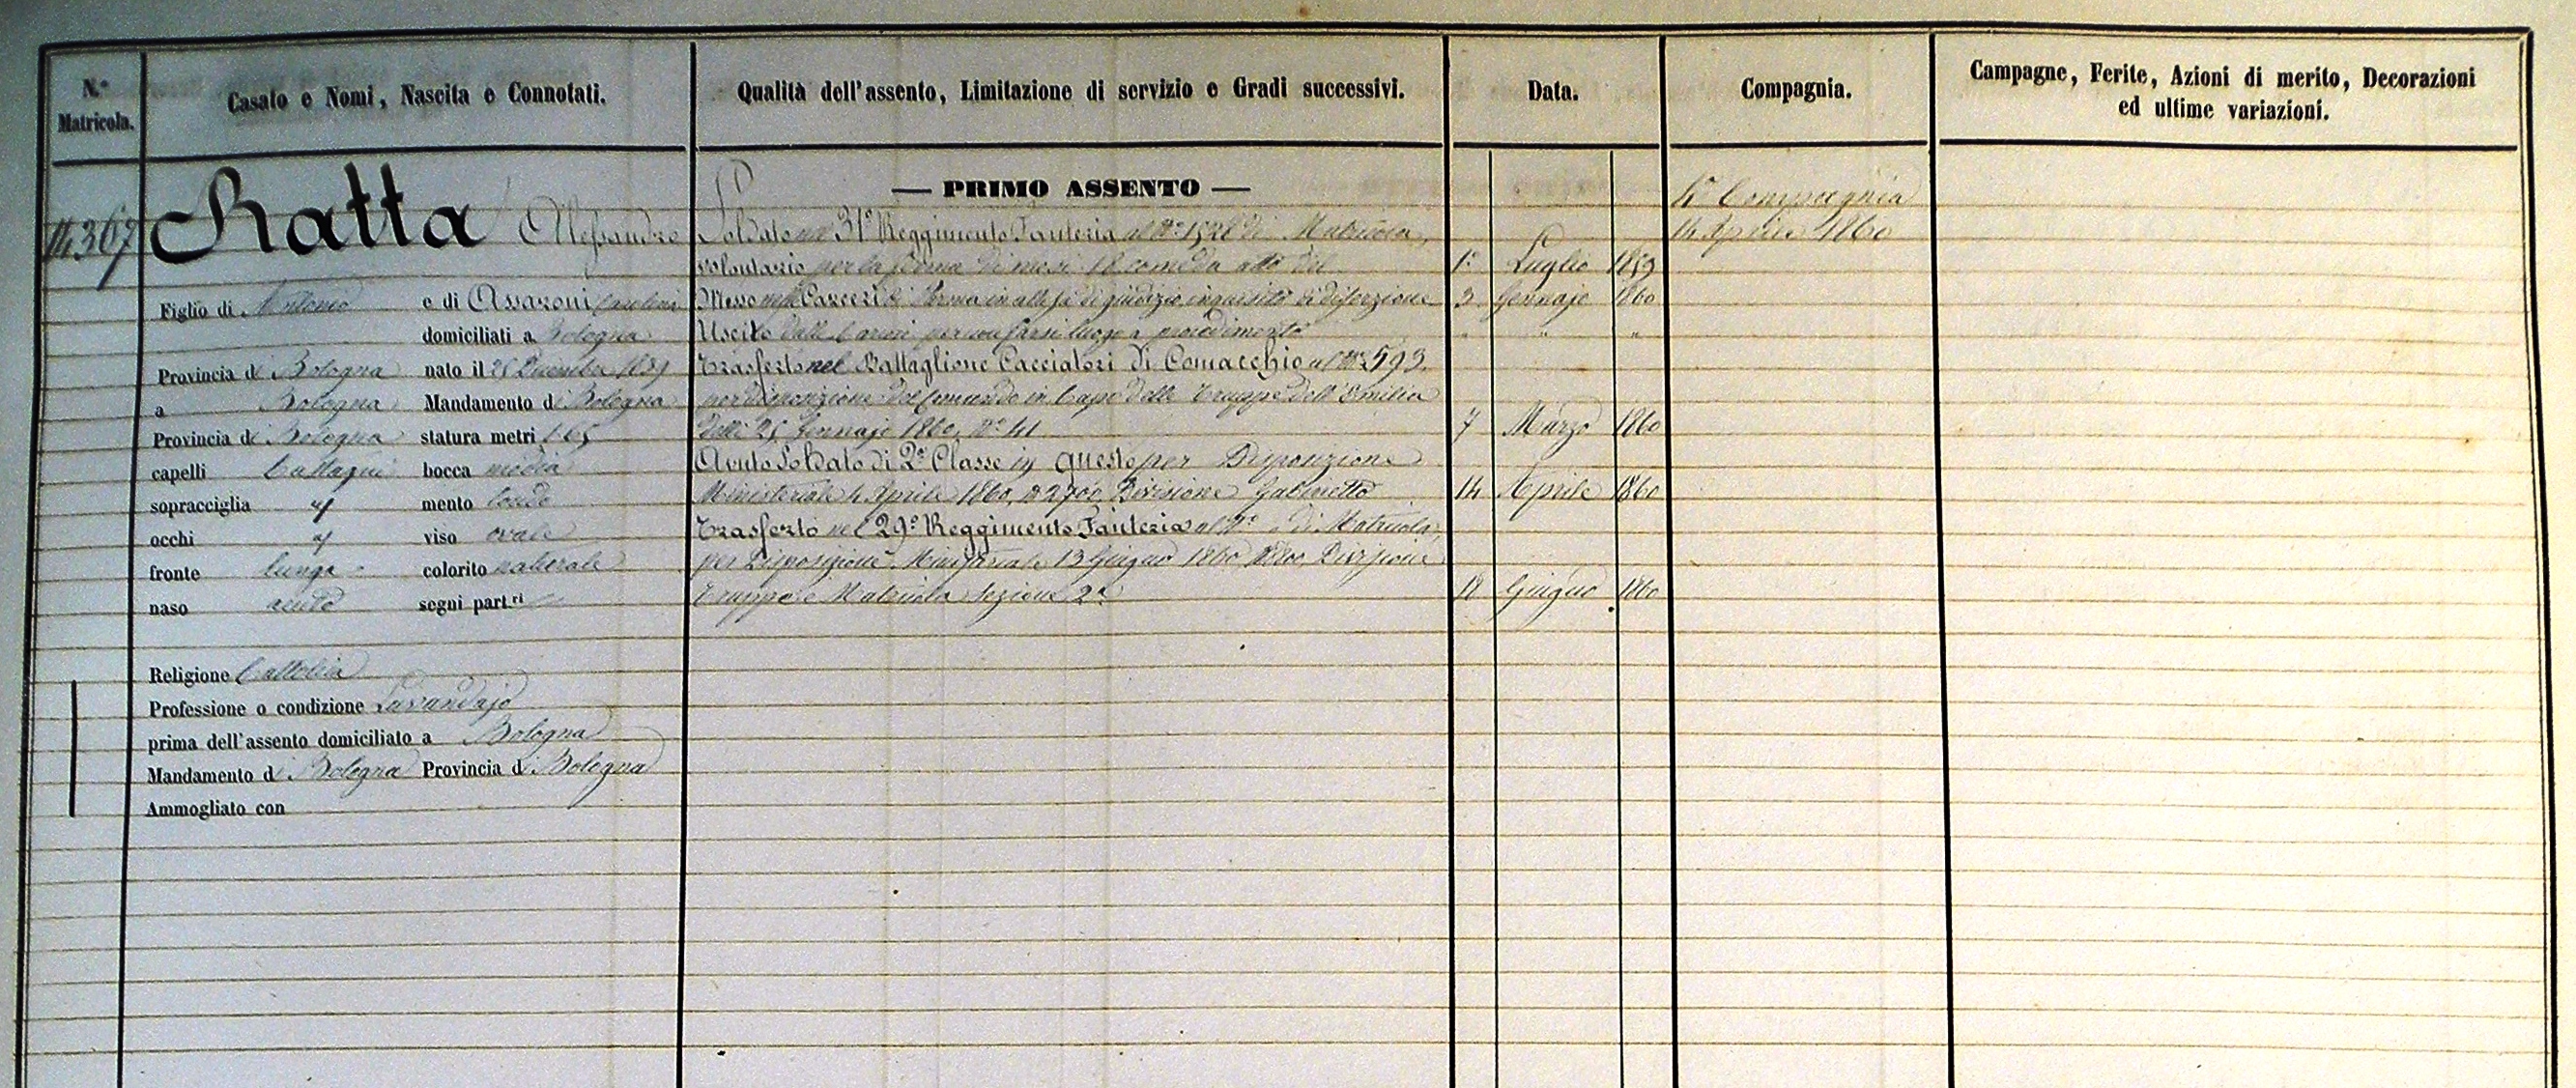 N.º Matricola.
Casato e Nomi, Nascita e Connotati.
Qualità dell'assento, Limitazione di servizio e Gradi successivi.
Data.
Compagnia.
Campagne, Ferite, Azioni di merito, Decorazioni
ed ultime variazioni.
14367
Ratta Alessandro
Figlio di Antonio e di Assaroni Carolina
domiciliati a Bologna
Provincia di Bologna nato il 25 Dicembre 1839
a Bologna Mandamento di Bologna
Provincia di Bologna statura metri 1.65
capelli Castagni bocca media
sopracciglia id mento tondo
occhi id viso ovale
fronte lunga colorito naturale
naso acuto segni part.ri
Religione Cattolica
Professione o condizione Lavandajo
prima dell'assento domiciliato a Bologna
Mandamento di Bologna Provincia di Bologna
Ammogliato con
— PRIMO ASSENTO —
Soldato nel 31º Reggimento Fanteria al Nº 1528 di Matricola,
volontario per la ferma di mesi 18 come da atto del 1º Luglio 1859
Messo nelle Carceri di Parma in attesa di giudizio inquisito di diserzione 3 Gennajo 1860
Uscito dalle Carceri per non farsi luogo a procedimento " " "
Trasferto nel Battaglione Cacciatori di Comacchio al Nº 593
per disposizione del Comando in Capo delle Truppe dell'Emilia
delli 25 Gennajo 1860, Nº 41 7 Marzo 1860
Avuto Soldato di 2ª Classe in questo per Disposizione
Ministeriale 4 Aprile 1860, Nº 2700 Divisione Gabinetto 14 Aprile 1860
Trasferto nel 29º Reggimento Fanteria al Nº di Matricola,
per Disposizione Ministeriale 13 Giugno 1860 Divisione
Truppe e Matricola Sezione 2ª 18 Giugno 1860
4ª Compagnia
14 Aprile 1860